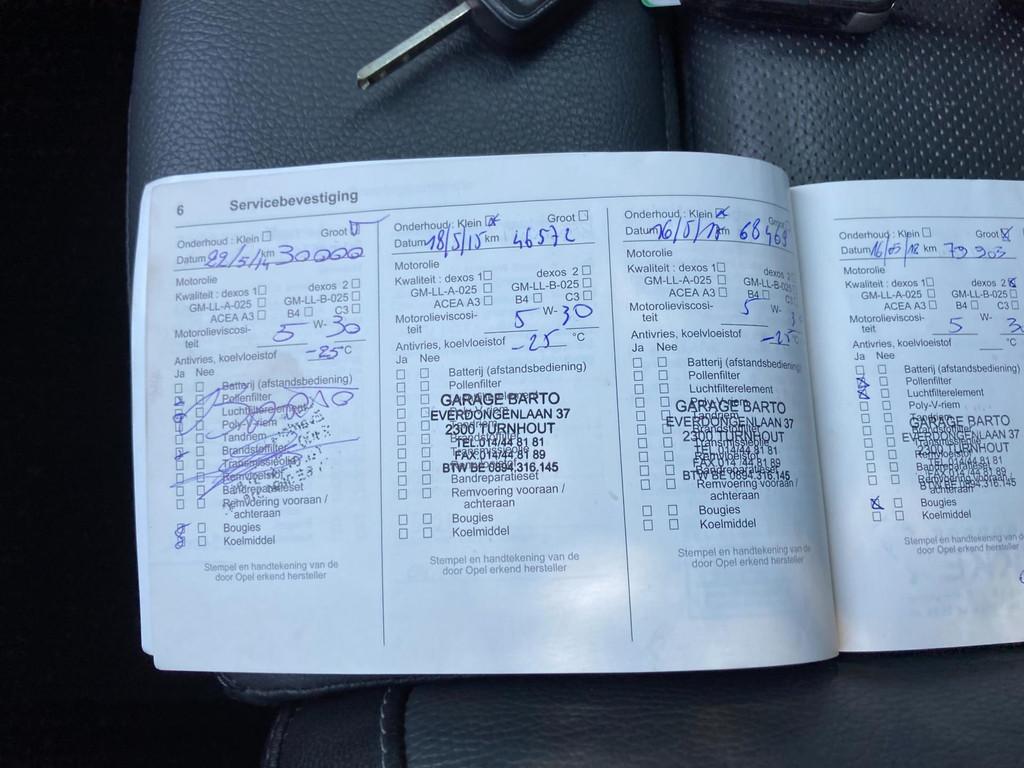 6 Servicebevestiging
Onderhoud : Klein Groot
Datum 22/5/14 km 30000
Motorolie
Kwaliteit : dexos 1 dexos 2
GM-LL-A-025 GM-LL-B-025
ACEA A3 B4 C3
Motorolieviscosi- 5 W- 30
teit
Antivries, koelvloeistof -25 °C
Ja Nee
Batterij (afstandsbediening)
Pollenfilter
Luchtfilterelement
Poly-V-riem
Tandriem
Brandstoffilter
Transmissieolie
Remvloeistof
Bandreparatieset
Remvoering vooraan /
achteraan
Bougies
Koelmiddel
Stempel en handtekening van de
door Opel erkend hersteller
Onderhoud : Klein Groot
Datum 18/5/15 km 46572
Motorolie
Kwaliteit : dexos 1 dexos 2
GM-LL-A-025 GM-LL-B-025
ACEA A3 B4 C3
Motorolieviscosi- 5 W- 30
teit
Antivries, koelvloeistof -25 °C
Ja Nee
Batterij (afstandsbediening)
Pollenfilter
GARAGE BARTO
EVERDONGENLAAN 37
2300 TURNHOUT
Brandstoffilter
TEL 014/44 81 81
FAX 014/44 81 89
BTW BE 0894.316.145
Bandreparatieset
Remvoering vooraan /
achteraan
Bougies
Koelmiddel
Stempel en handtekening van de
door Opel erkend hersteller
Onderhoud : Klein Groot
Datum km 68469
Motorolie
Kwaliteit : dexos 1 dexos 2
GM-LL-A-025 GM-LL-B-025
ACEA A3 B4 C3
Motorolieviscosi- 5 W-
teit
Antivries, koelvloeistof -25
Ja Nee
Batterij (afstandsbediening)
Pollenfilter
Luchtfilterelement
Poly-V-riem
GARAGE BARTO
EVERDONGENLAAN 37
2300 TURNHOUT
Transmissieolie
TEL 014/44 81 81
FAX 014/44 81 89
BTW BE 0894.316.145
Bandreparatieset
Remvoering vooraan /
achteraan
Bougies
Koelmiddel
Stempel en handtekening van de
door Opel erkend hersteller
Onderhoud : Klein Groot
Datum 16/05/18 km 79903
Motorolie
Kwaliteit : dexos 1 dexos 2
GM-LL-A-025 GM-LL-B-025
ACEA A3 B4 C3
Motorolieviscosi- 5 W-
teit
Antivries, koelvloeistof °C
Ja Nee
Batterij (afstandsbediening)
Pollenfilter
Luchtfilterelement
Poly-V-riem
Tandriem
GARAGE BARTO
EVERDONGENLAAN 37
TURNHOUT
TEL 014/44 81 81
Bandreparatieset
FAX 014/44 81 89
Remvoering vooraan /
BTW BE 0894.316.145
achteraan
Bougies
Koelmiddel
Stempel en handtekening van de
door Opel erkend hersteller